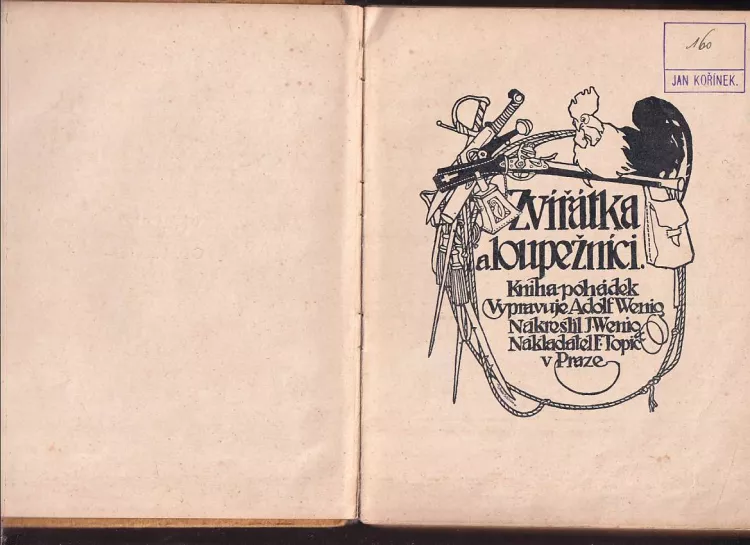 160
JAN KOŘÍNEK.
Zvířátka
a loupežníci.
Kniha pohádek
Vypravuje Adolf Wenig
Nakreslil J. Wenig
Nakladatel F. Topič
v Praze